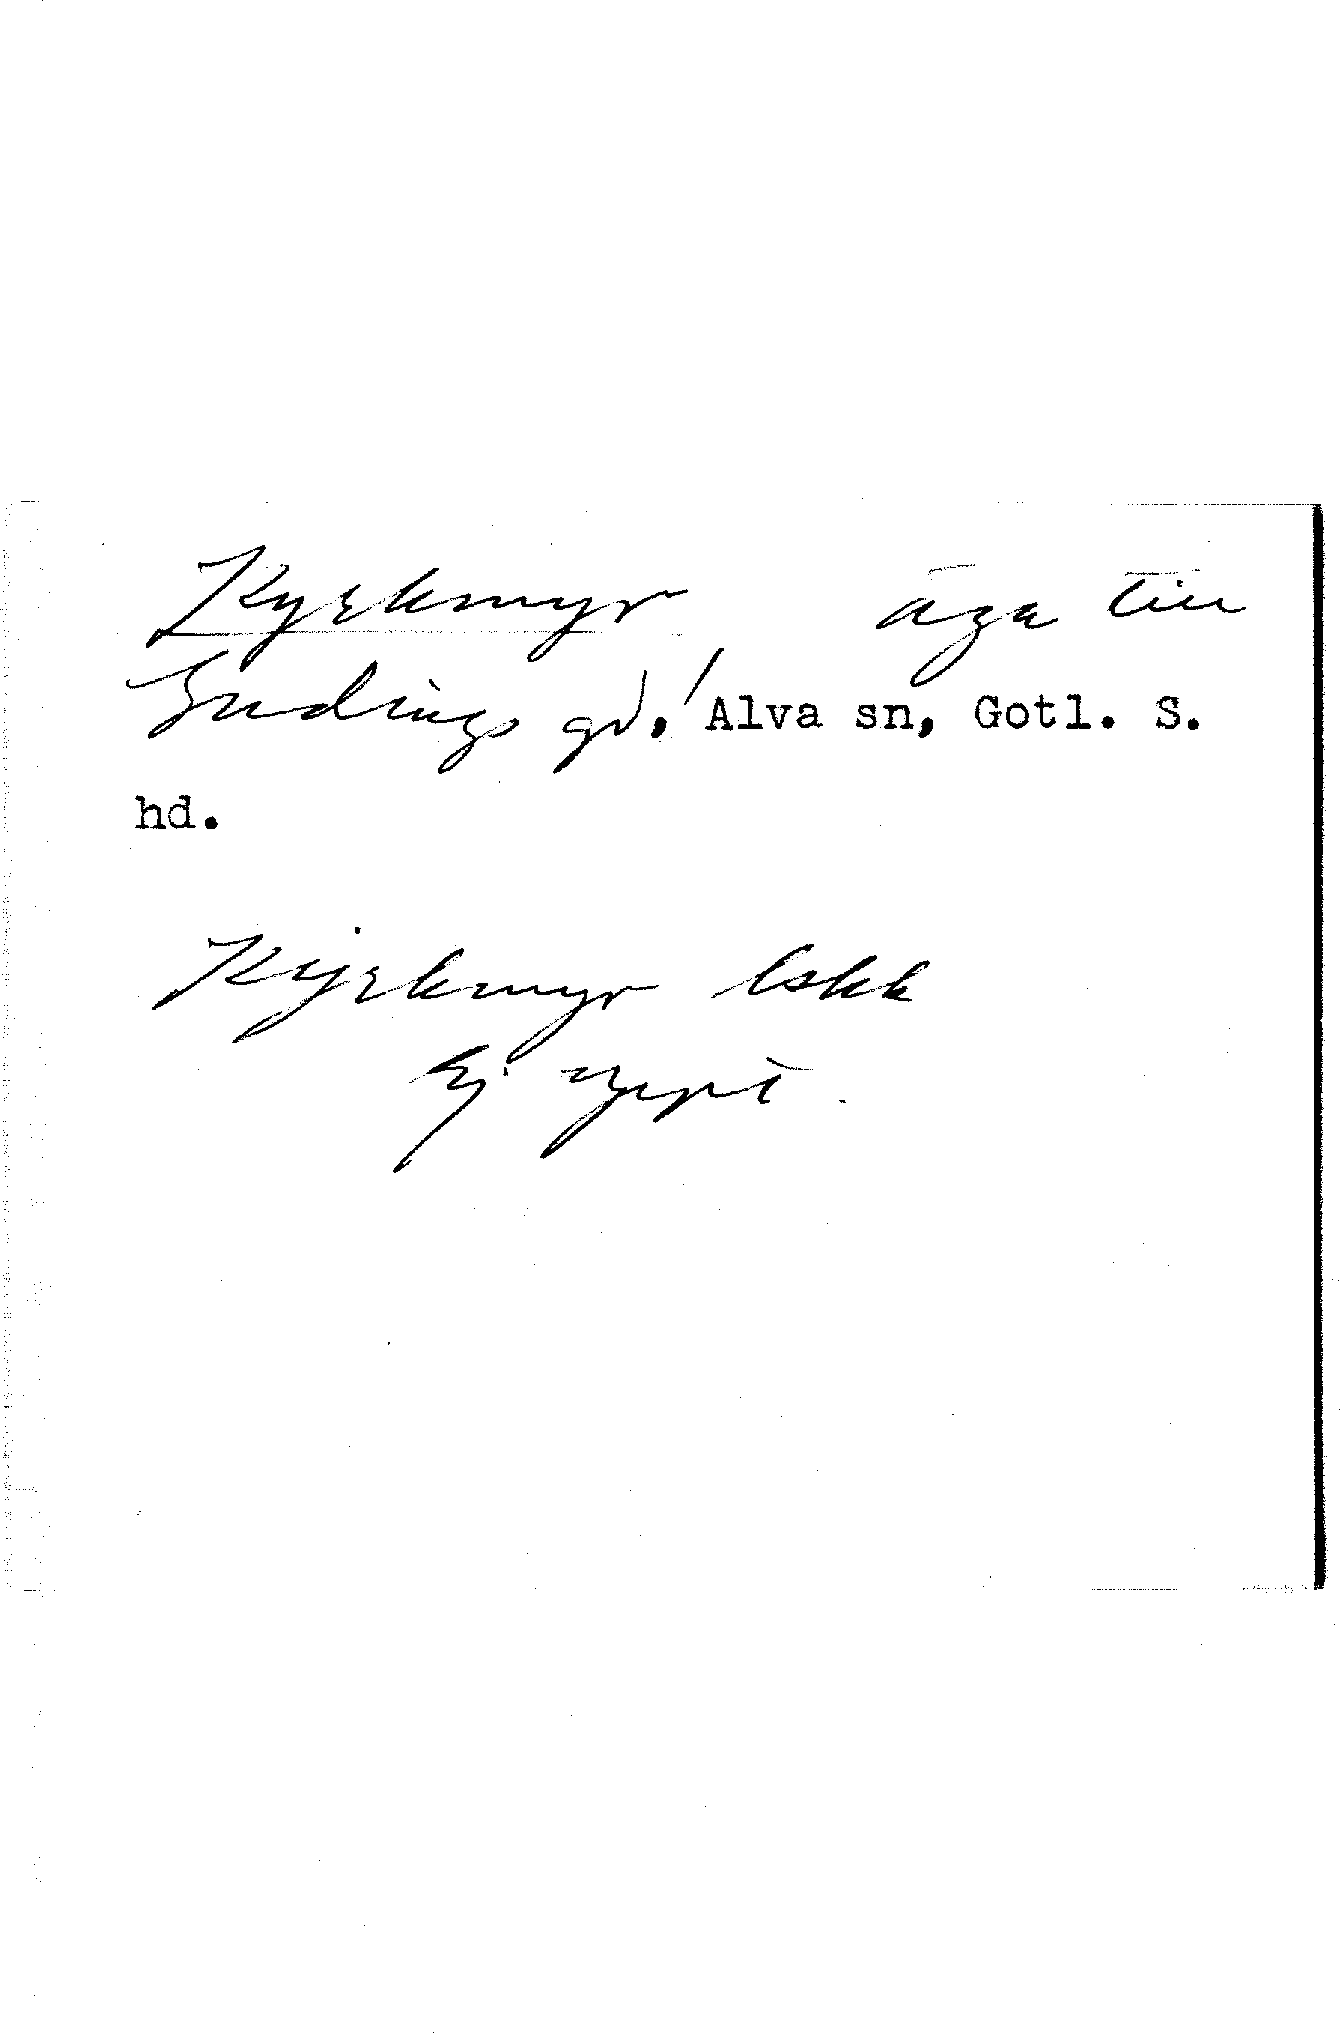 Kyrkmyr äga till
Gudings gd, Alva sn, Gotl. S.
hd.
Kyrkmyr
Ej